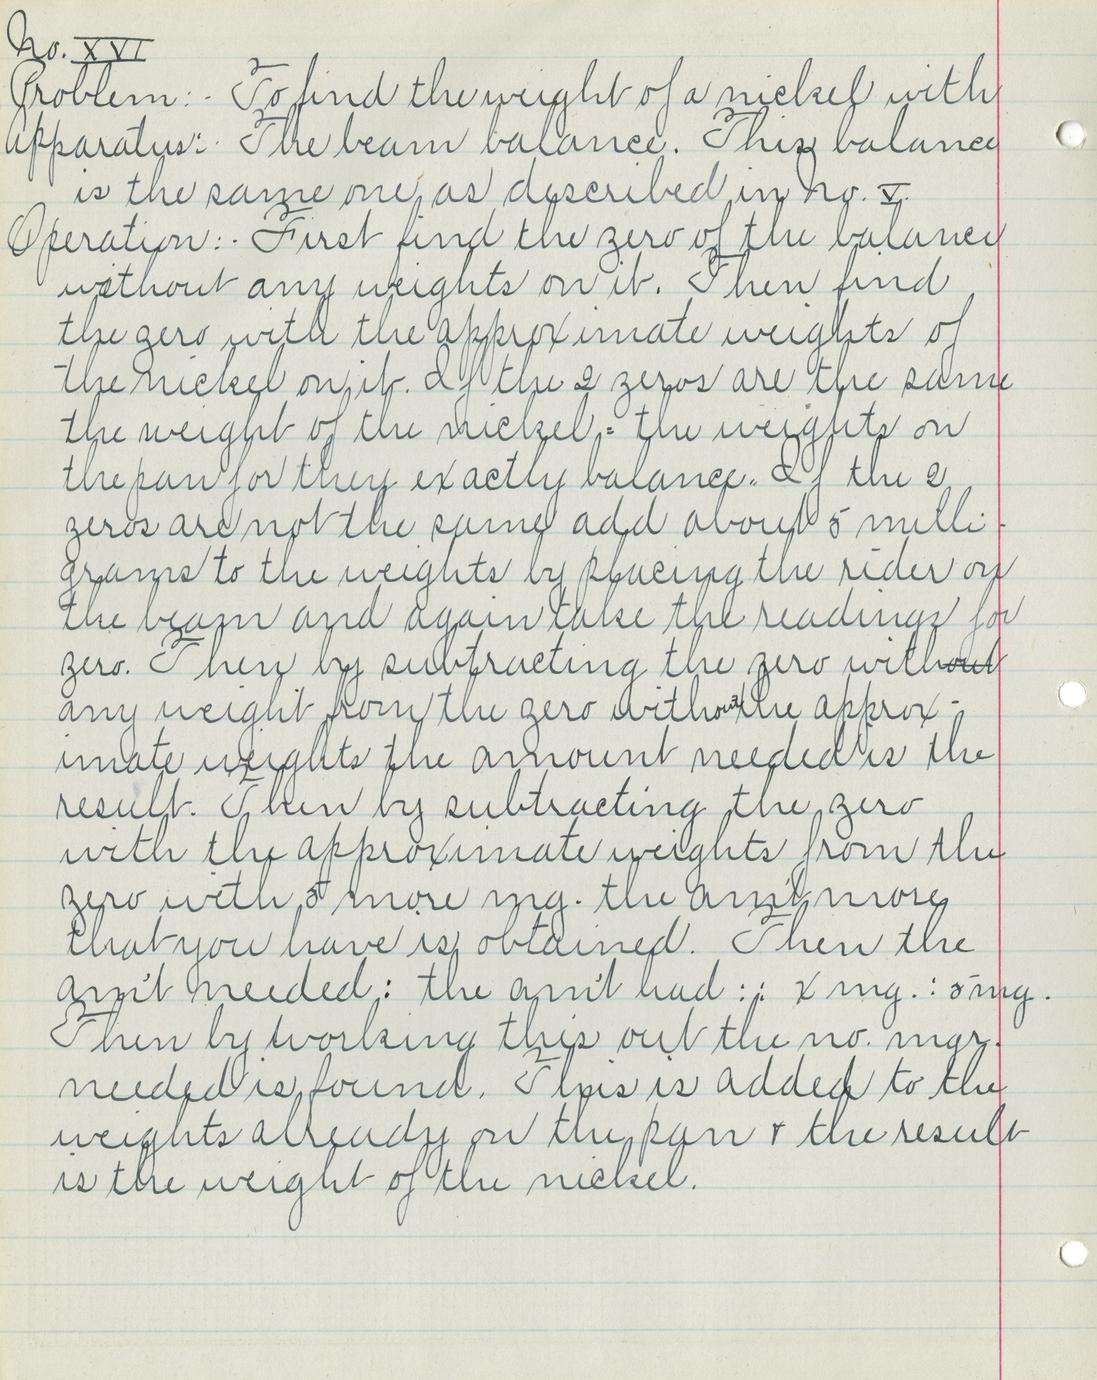 No. XVI
Problem:- To find the weight of a nickel with
Apparatus:- The beam balance. This balance
is the same one as described in No. V.
Operation:- First find the zero of the balance
without any weights on it. Then find
the zero with the approximate weights of
the nickel on it. If the 2 zeros are the same
the weight of the nickel = the weights on
the pan for they exactly balance. If the 2
zeros are not the same add about 5 milli-
grams to the weights by placing the rider on
the beam and again take the readings for
zero. Then by subtracting the zero without
any weight from the zero without the approx-
imate weights the amount needed is the
result. Then by subtracting the zero
with the approximate weights from the
zero with 5 more mg. the am't more
that you have is obtained. Then the
am't needed : the am't had :: x mg. : 5 mg.
Then by working this out the no. mgr.
needed is found. This is added to the
weights already on the pan & the result
is the weight of the nickel.